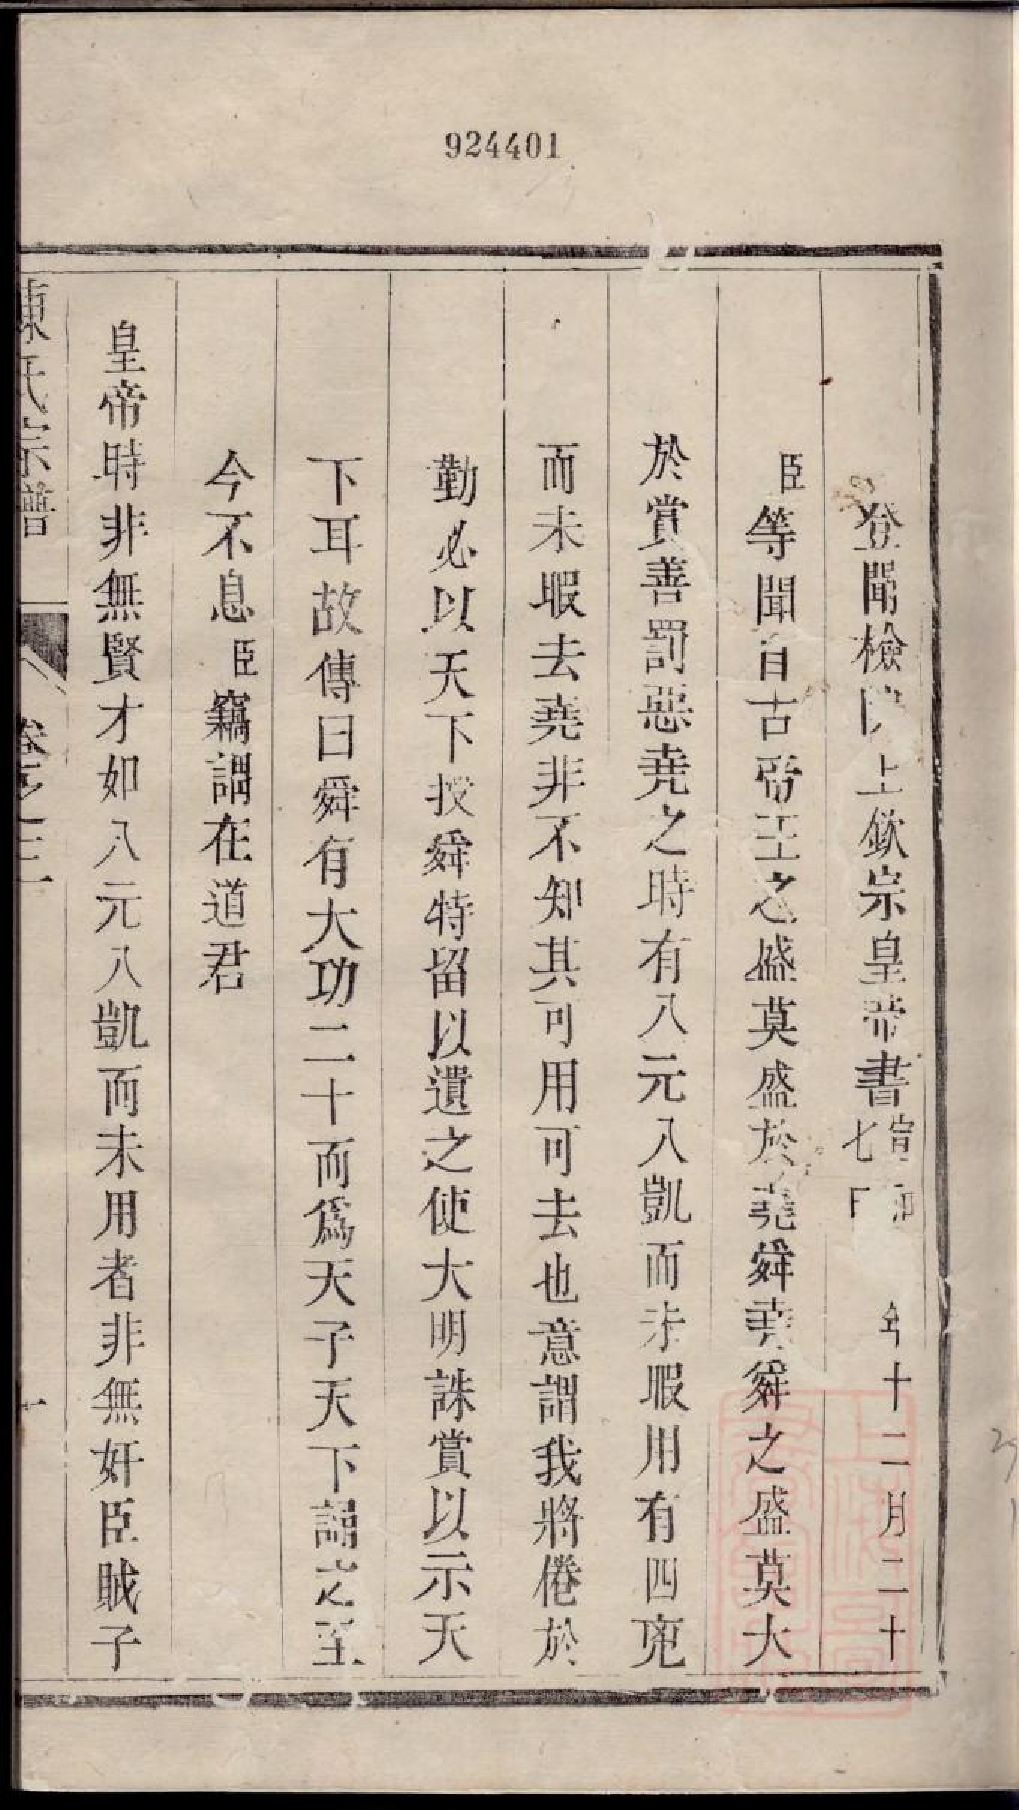 924401
登聞檢院上欽宗皇帝書宣和 年十二月二十七日
臣等聞自古帝王之盛莫盛於堯舜堯舜之盛莫大
於賞善罰惡堯之時有八元八凱而未暇用有四兇
而未暇去堯非不知其可用可去也意謂我將倦於
勤必以天下授舜特留以遺之使大明誅賞以示天
下耳故傳曰舜有大功二十而爲天子天下謌之至
今不息臣竊謂在道君
皇帝時非無賢才如八元八凱而未用者非無奸臣賊子
陳氏宗譜 卷之二 一